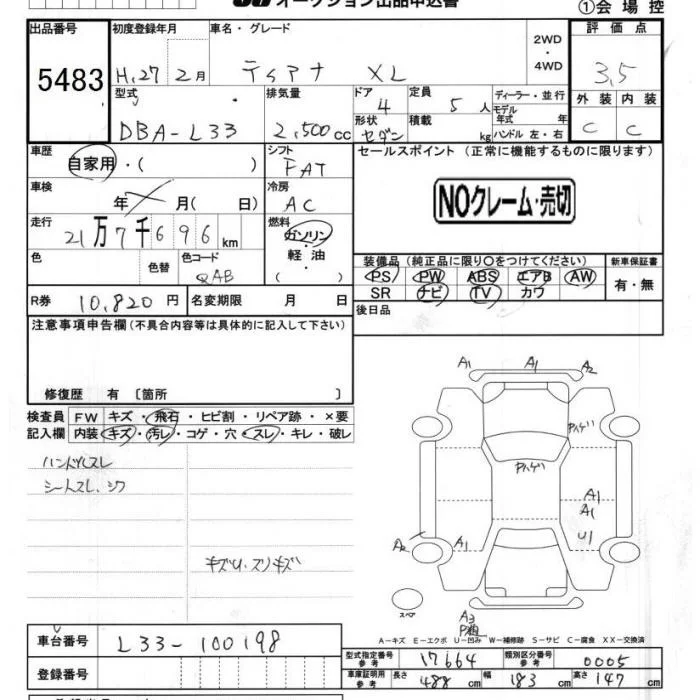 オークション出品申込書
①会場控
出品番号 初度登録年月 車名・グレード 2WD・4WD 評価点
5483 H.27 2月 ティアナ XL 3.5
型式 排気量 ドア 定員 ディーラー・並行 外装 内装
DBA-L33 2,500cc 4 5人 モデル年式 年 C C
形状 積載 kg ハンドル 左・右
セダン
車歴 シフト セールスポイント (正常に機能するものに限ります)
自家用・( ) FAT
車検 年 月( 日) 冷房 AC
NOクレーム・売切
走行 21万7千696km 燃料 ガソリン・軽油・( )
色 色替 色コード QAB
装備品 (純正品に限り○をつけてください) 新車保証書
PS PW ABS エアB AW 有・無
SR ナビ TV カワ
R券 10,820円 名変期限 月 日
後日品
注意事項申告欄(不具合内容等は具体的に記入して下さい)
修復歴 有 〔箇所 〕
検査員記入欄 FW キズ・飛石・ヒビ割・リペア跡・×要
内装 キズ・汚レ・コゲ・穴・スレ・キレ・破レ
ハンドルスレ
シートスレ、シワ
キズU.スリキズ
A1 A1 A2
ヤハゲ
ヤハゲ
A1
A1
U1
A2 A1
スペア
A3
A-キズ E-エクボ U-凹み W-補修跡 S-サビ C-腐食 XX-交換済
車台番号 L33-100198
登録番号
型式指定番号 参考 17664 類別区分番号 参考 0005
車庫証明用 参考 長さ 488cm 幅 183cm 高さ 147cm